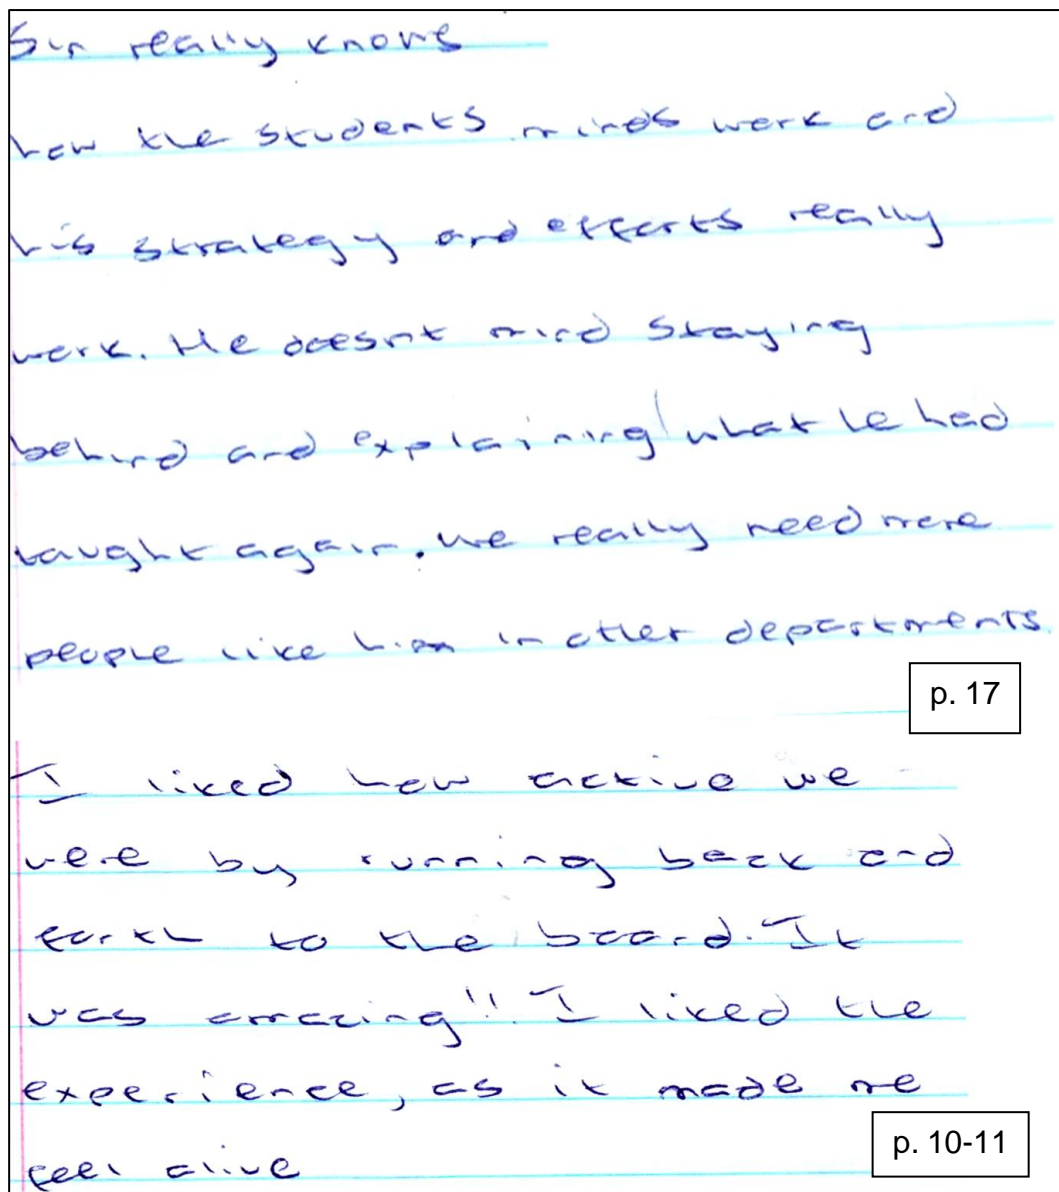 Sir really knows
how the students minds work and
his strategy and efforts really
work. He doesnt mind staying
behind and explaining what he had
taught again. we really need more
people like him in other departments.
p. 17
I liked how active we
were by running back and
forth to the board. It
was amazing!! I liked the
experience, as it made me
feel alive
p. 10-11